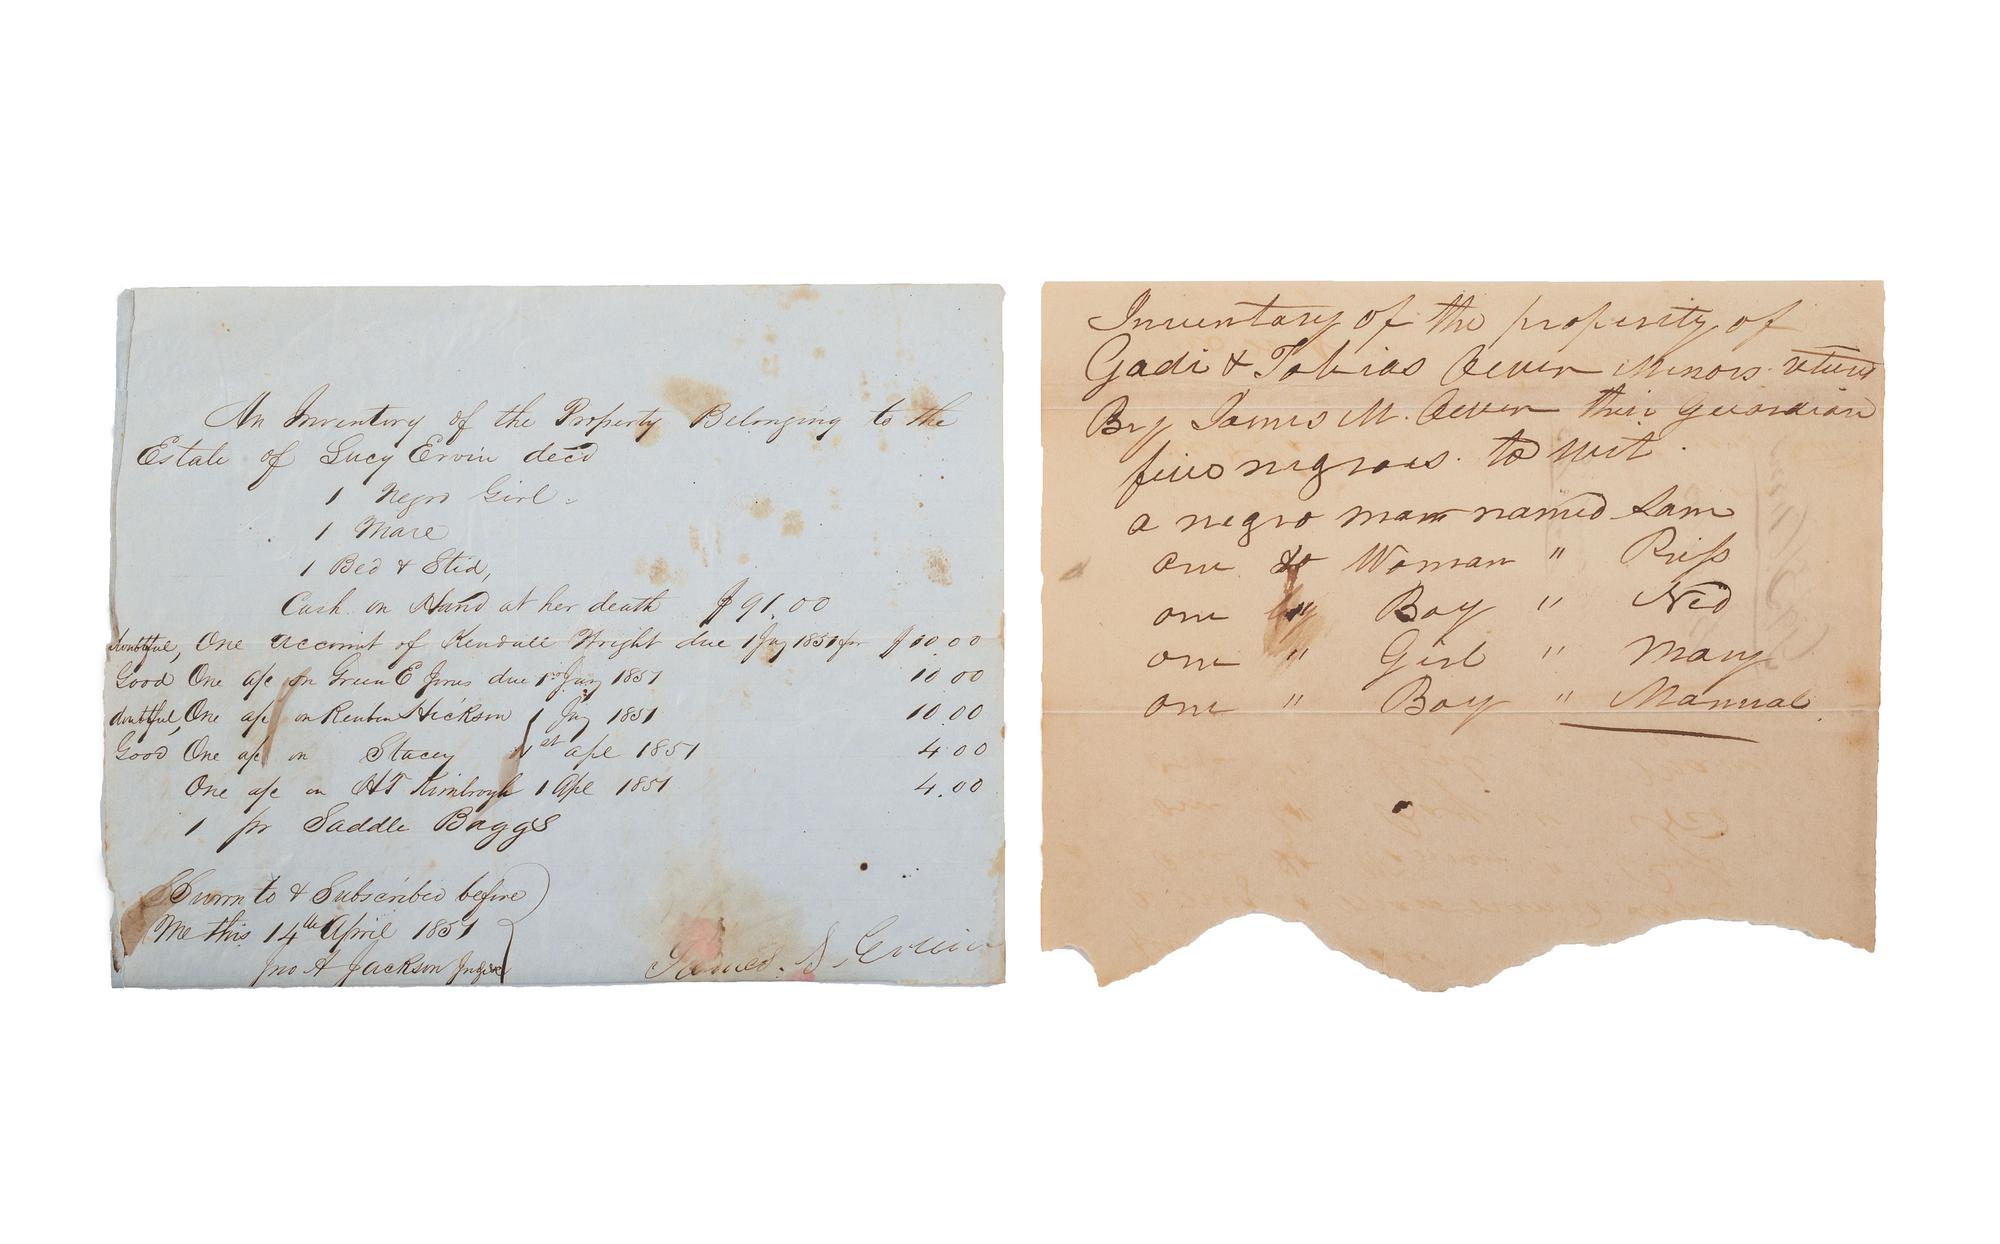 An Inventory of the Property Belonging to the
Estate of Lucy Ervin decd
1 Negro Girl
1 Mare
1 Bed & Stid,
Cash on Hand at her death $91.00
doubtful, One account of Kendall Wright due 1 Jny 1851 for $10.00
Good One a/c on Green E Jones due 1st Jany 1851 10 00
doubtful, One a/c on Reuben Hickson 1 Jny 1851 10.00
Good One a/c on Stacey 1st apl 1851 4.00
One a/c on HT Kimbrogh 1 Apl 1851 4.00
1 pr Saddle Baggs
Swrn to & Subscribed before
Me this 14th April 1851
Jno A Jackson
James. S. Ervin
Inventory of the property of
Gadi & Tobias Minors return
By James M. their Guardian
five negroes. to wit.
a negro man named Sam
one do Woman " Riss
one " Boy " Ned
one " Girl " Mary
one " Boy " Manual.